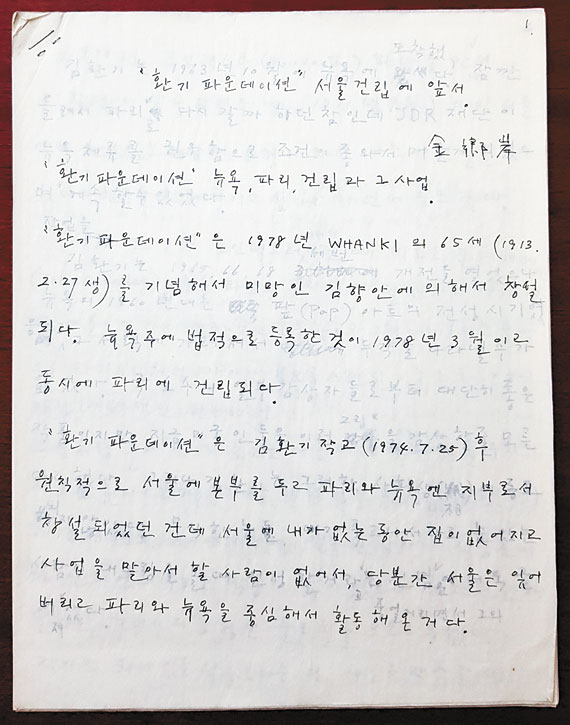 1.
"환기 파운데이션" 서울건립에 앞서.
金 鄕岸
"환기파운데이션" 뉴욕, 파리, 건립과 그 사업.
"환기파운데이션"은 1978년 WHANKI의 65세 (1913.
2.27생)를 기념해서 미망인 김향안에 의해서 창설
되다. 뉴욕주에 법적으로 등록한 것이 1978년 3월이고
동시에 파리에 건립되다.
"환기 파운데이션"은 김환기 작고 (1974.7.25) 후
원칙적으로 서울에 본부를 두고 파리와 뉴욕엔 지부로서
창설되었던 건데 서울엔 내가 없는 동안 집이 없어지고
사업을 맡아서 할 사람이 없어서, 당분간 서울은 잊어
버리고 파리와 뉴욕을 중심해서 활동해온 거다.